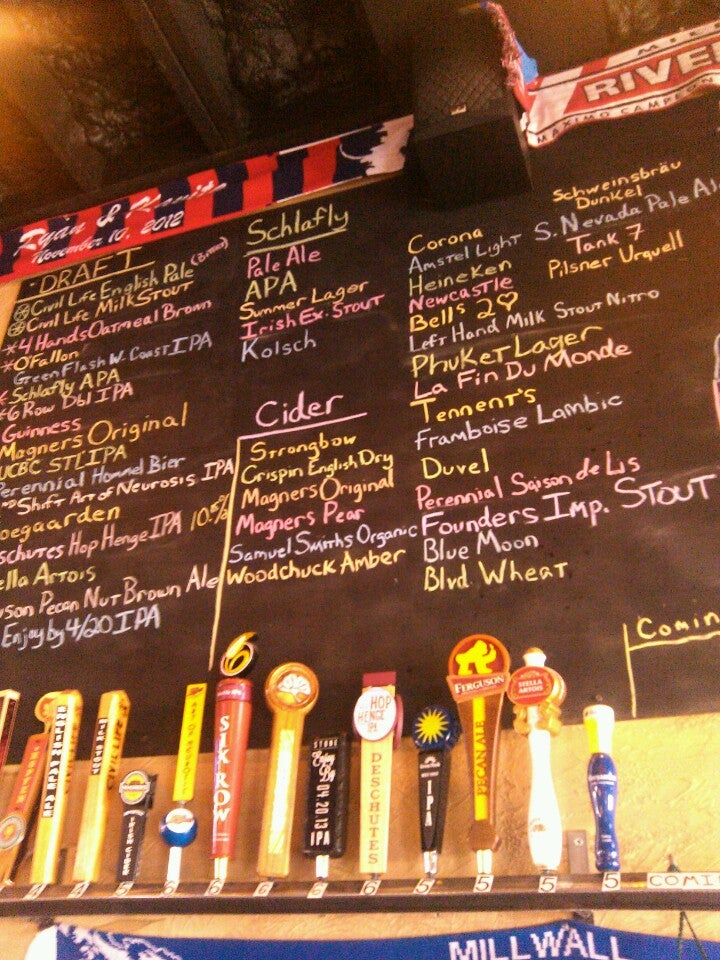 RIVE
MAXIMO CAMPEON
Ryan &
November 10, 2012
DRAFT
Civil Life English Pale
Civil Life Milk Stout
*4 Hands Oatmeal Brown
*O'Fallon
Green Flash W. Coast IPA
*Schlafly APA
*6 Row Dbl IPA
Guinness
Magners Original
UCBC STL IPA
Perennial Hommel Bier
Shift Art of Neurosis IPA
oegaarden
schutes Hop Henge IPA 10.5%
ella Artois
uson Pecan Nut Brown Ale
Enjoy by 4/20 IPA
Schlafly
Pale Ale
APA
Summer Lager
Irish Ex. Stout
Kolsch
Cider
Strongbow
Crispin English Dry
Magners Original
Magners Pear
Samuel Smiths Organic
Woodchuck Amber
Corona
Amstel Light
Heineken
Newcastle
Bells 2♡
Left Hand Milk Stout Nitro
Phuket Lager
La Fin Du Monde
Tennent's
Framboise Lambic
Duvel
Perennial Saison de Lis
Founders Imp. Stout
Blue Moon
Blvd Wheat
Schweinsbräu
Dunkel
S. Nevada Pale Al
Tank 7
Pilsner Urquell
Comin
SIXROW
STONE
Enjoy By
04.20.13
IPA
HOP
HENGE
IPA
DESCHUTES
IPA
FERGUSON
PECAN ALE
STELLA
ARTOIS
6
6
6
6
5
5
5
COMI
MILLWALL